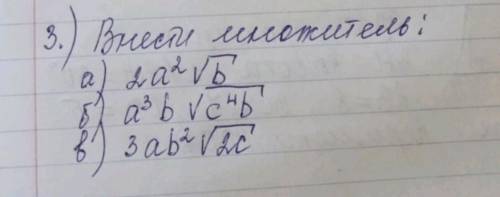 3.) Внести множитель:
а) 2a²√b
б) a³b√c⁴b
в) 3ab²√2c